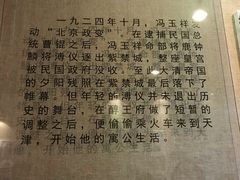 一九二四年十月，冯玉祥发
动“北京政变”。在逮捕民国总
统曹锟之后，冯玉祥命部将鹿钟
麟将溥仪逐出紫禁城，整座皇宫
被民国政府没收。至此大清帝国
的夕阳残照在紫禁城最后落下了
帷幕。但年轻的溥仪并未退出历
史的舞台，在醇王府做了短暂的
调整之后，便偷偷乘火车来到天
津，开始他的寓公生活。